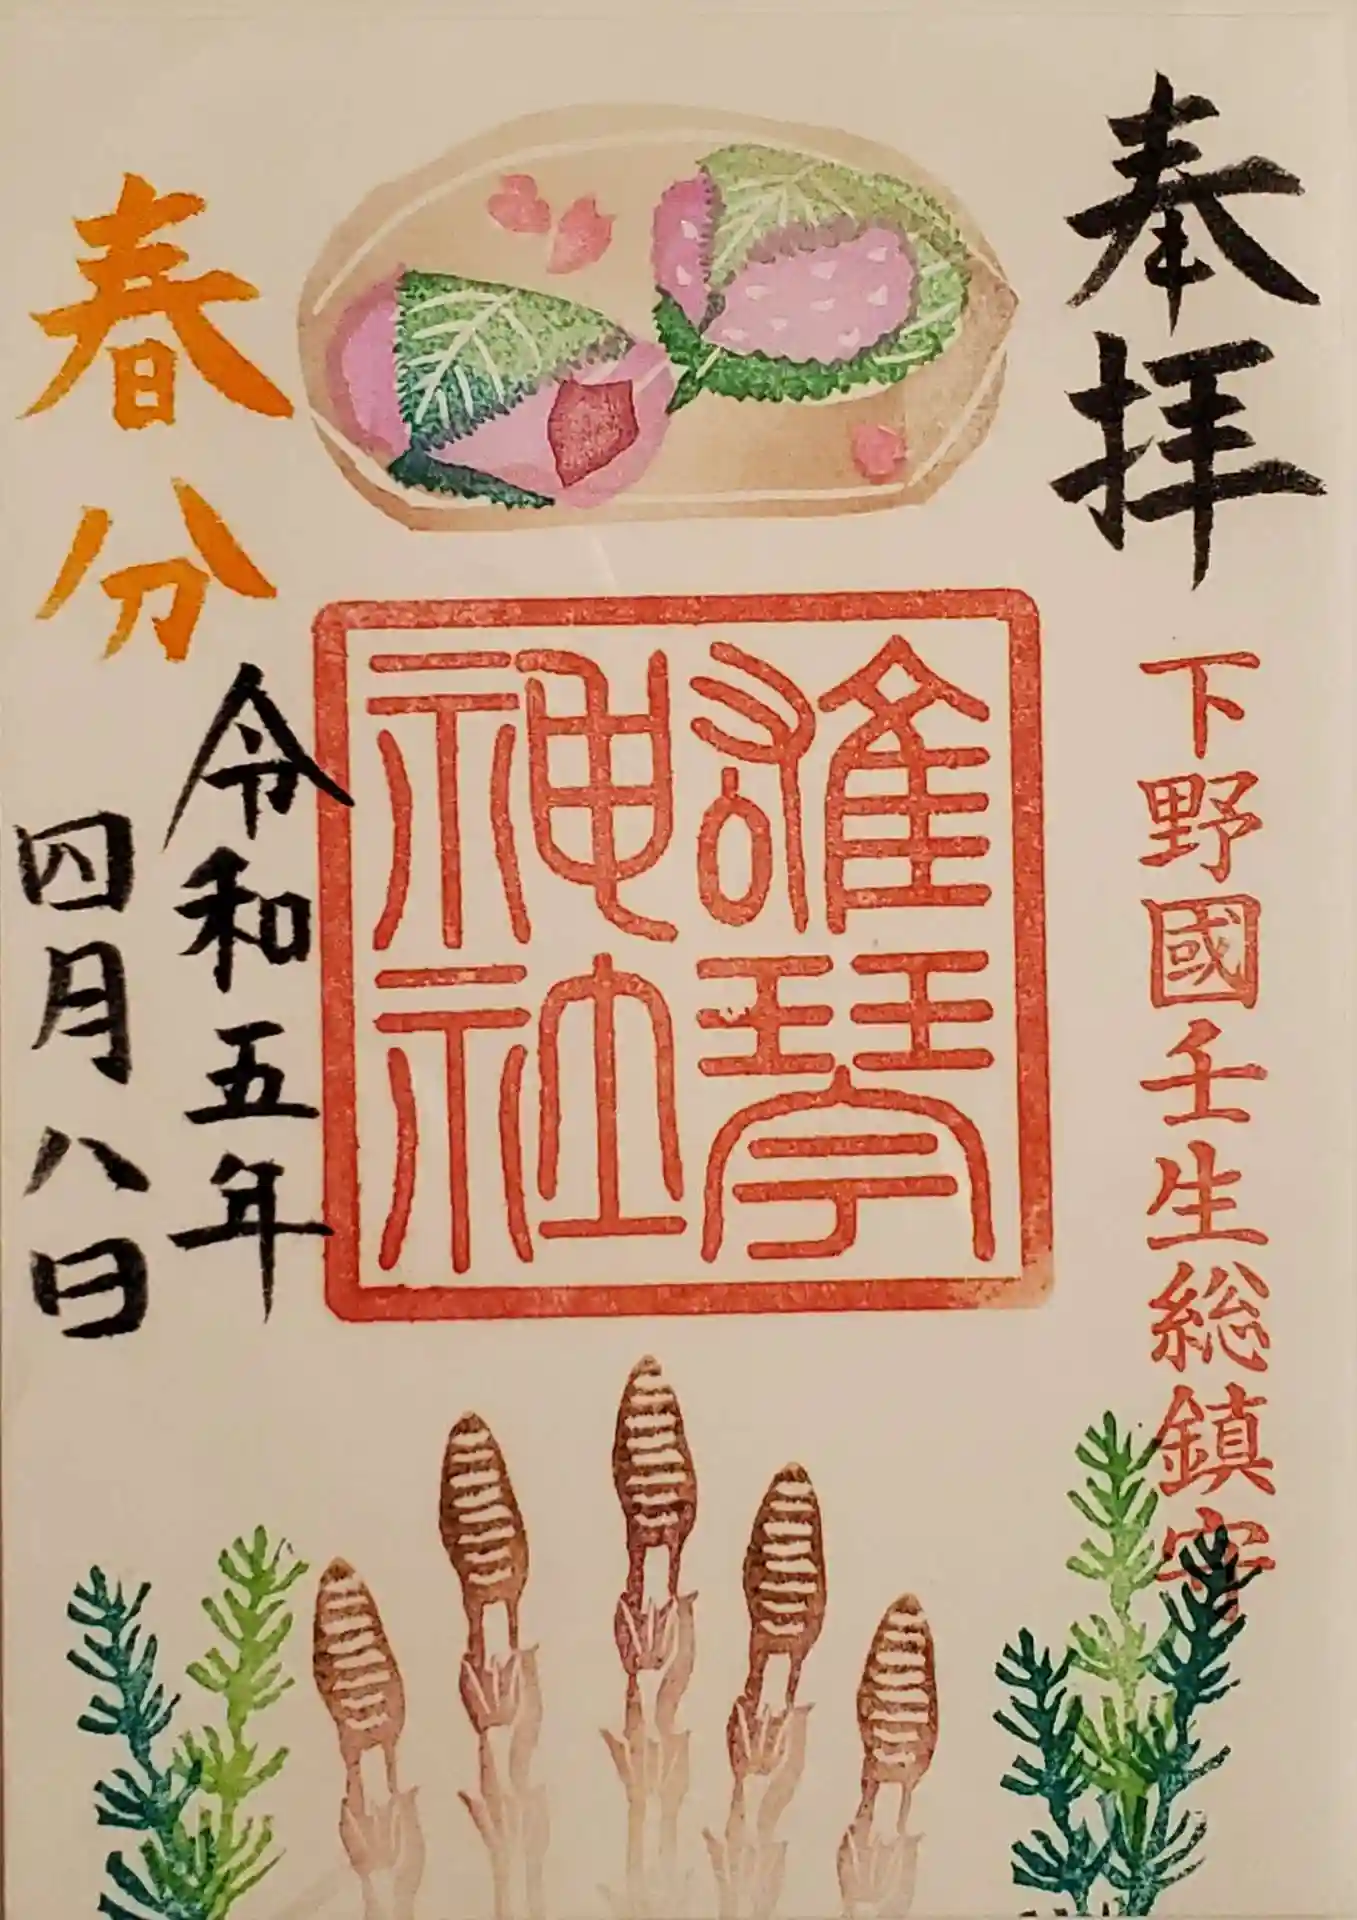 奉拝
下野國壬生総鎮守
雄琴
神社
春分
令和五年
四月八日